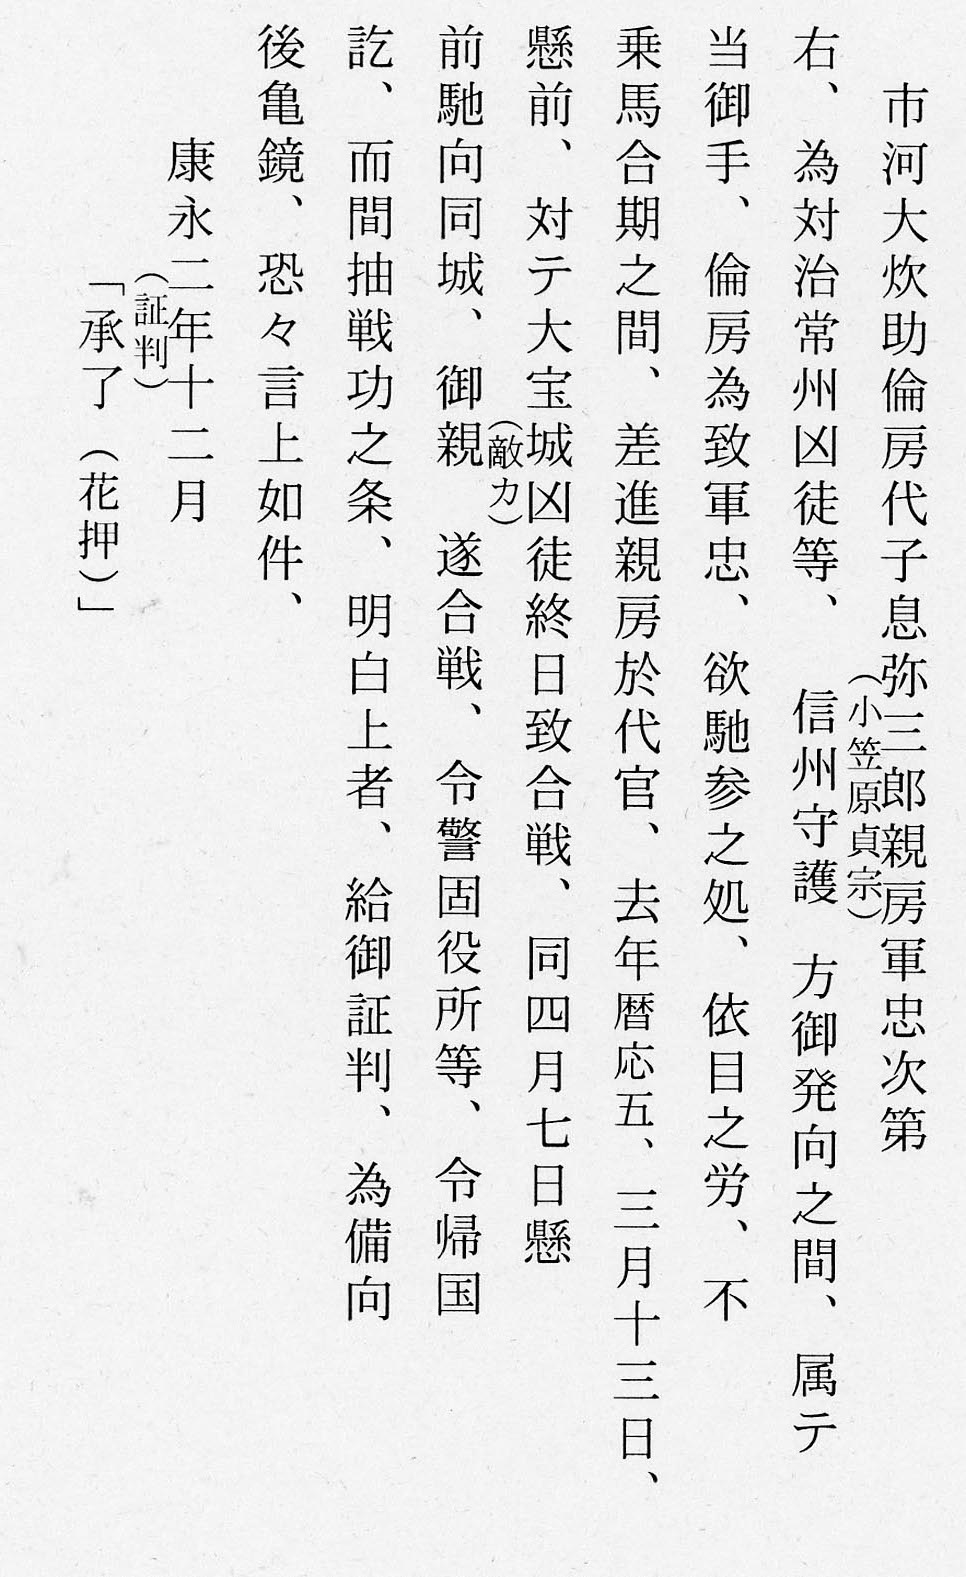 市河大炊助倫房代子息弥三郎親房軍忠次第
(小笠原貞宗)
右、為対治常州凶徒等、信州守護　方御発向之間、属テ
当御手、倫房為致軍忠、欲馳参之処、依目之労、不
乗馬合期之間、差進親房於代官、去年暦応五、三月十三日、
懸前、対テ大宝城凶徒終日致合戦、同四月七日懸
(敵カ)
前馳向同城、御親　遂合戦、令警固役所等、令帰国
訖、而間抽戦功之条、明白上者、給御証判、為備向
後亀鏡、恐々言上如件、
康永二年十二月
(証判)
「承了(花押)」